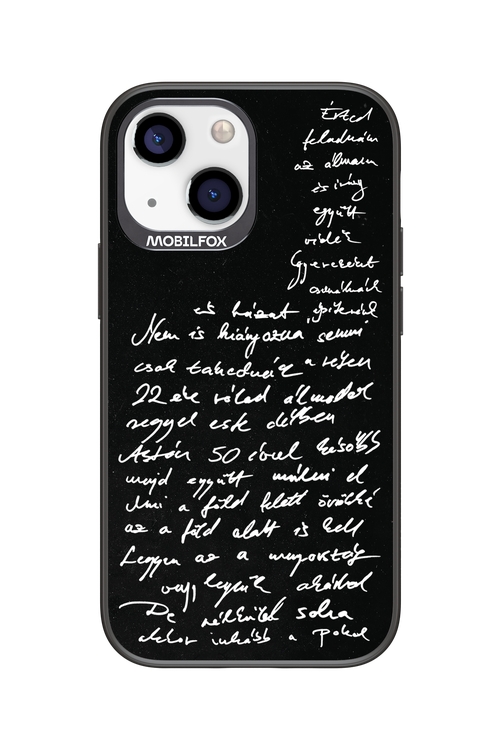 MOBILFOX
Érted
feladnám
az álmom
és így
együtt
vidék
Gyereket
csinálnánk
és házat építenénk
Nem is hiányozna semmi
csak
22 éve rólad álmodok
reggel este délben
Aztán 50 évvel később
majd együtt múlni el
Ami a föld felett örökké
az a föld alatt is kell
Legyen az a mennyország
vagy legyünk akárhol
De nélküled soha
akkor inkább a Pokol